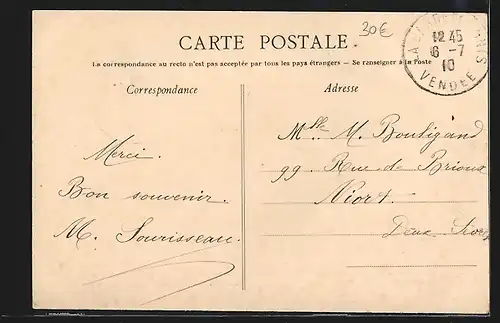 30€
CARTE POSTALE
La correspondance au recto n'est pas acceptée par tous les pays étrangers — Se renseigner à la Poste
Correspondance
Adresse
12 45
6 - 7
10
VENDÉE
Merci.
Bon souvenir.
M. Sourisseau.
Mlle. M. Bouligand
99. Rue de Brioux
Niort.
Deux Sèvres